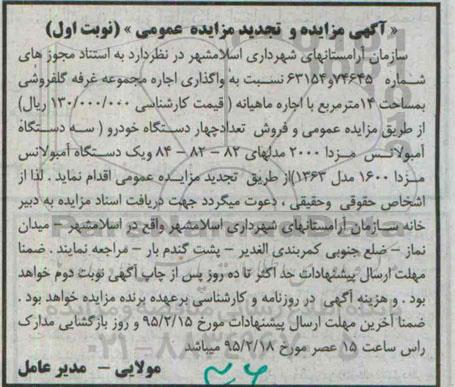 « آگهی مزایده و تجدید مزایده عمومی » (نوبت اول)
سازمان آرامستانهای شهرداری اسلامشهر در نظردارد به استناد مجوز های
شماره ۷۴۶۴۵و۶۳۱۵۴ نسبت به واگذاری اجاره مجموعه غرفه گلفروشی
بمساحت ۱۴مترمربع با اجاره ماهیانه ( قیمت کارشناسی ۱۳۰/۰۰۰/۰۰۰ ریال)
از طریق مزایده عمومی و فروش تعدادچهار دستگاه خودرو ( سه دستگاه
آمبولانس مزدا ۲۰۰۰ مدلهای ۸۳ - ۸۲ - ۸۴ ویک دستگاه آمبولانس
مزدا ۱۶۰۰ مدل ۱۳۶۳)از طریق تجدید مزایده عمومی اقدام نماید . لذا از
اشخاص حقوقی وحقیقی ، دعوت میگردد جهت دریافت اسناد مزایده به دبیر
خانه سازمان آرامستانهای شهرداری اسلامشهر واقع در اسلامشهر - میدان
نماز - ضلع جنوبی کمربندی الغدیر - پشت گندم بار - مراجعه نمایند . ضمنا
مهلت ارسال پیشنهادات حد اکثر تا ده روز پس از چاپ آگهی نوبت دوم خواهد
بود . و هزینه آگهی در روزنامه و کارشناسی برعهده برنده مزایده خواهد بود .
ضمنا آخرین مهلت ارسال پیشنهادات مورخ ۹۵/۲/۱۵ و روز بازگشایی مدارک
راس ساعت ۱۵ عصر مورخ ۹۵/۲/۱۸ میباشد
مولایی - مدیر عامل